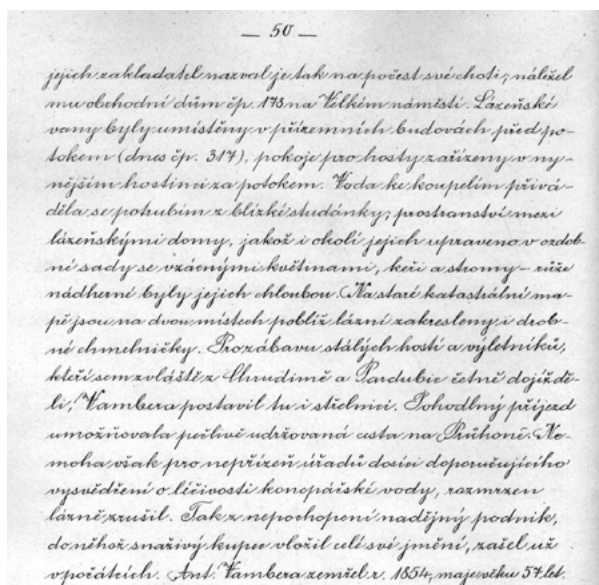 — 50 —
jejich zakladatel nazval je tak na počest své choti; náležel
mu obchodní dům čp. 173 na Velkém náměstí. Lázeňské
vany byly umístěny v přízemních budovách před po-
tokem (dnes čp. 317), pokoje pro hosty zařízeny v ny-
nějším hostinci za potokem. Voda ke koupelím přivá-
děla se potrubím z blízké studánky; prostranství mezi
lázeňskými domy, jakož i okolí jejich upraveno v ozdob-
né sady se vzácnými květinami, keři a stromy – růže
nádherné byly jejich chloubou. Na staré katastrální ma-
pě jsou na dvou místech poblíž lázní zakresleny i drob-
né chmelničky. Pro zábavu stálých hostí a výletníků,
kteří sem zvláště z Chrudimě a Pardubic četně dojížď ě-
li, Vambera postavil tu i střelnici. Pohodlný příjezd
umožňovala pečlivě udržovaná cesta na Průhoně. Ne-
moha však pro nepřízeň úřadů dosíci doporučujícího
vysvědčení o léčivosti konopářské vody, rozmrzen
lázně zrušil. Tak z nepochopení nadějný podnik,
do něhož snaživý kupec vložil celé své jmění, zašel už
v počátcích. Ant. Vambera zemřel r. 1854, maje věku 57 let.